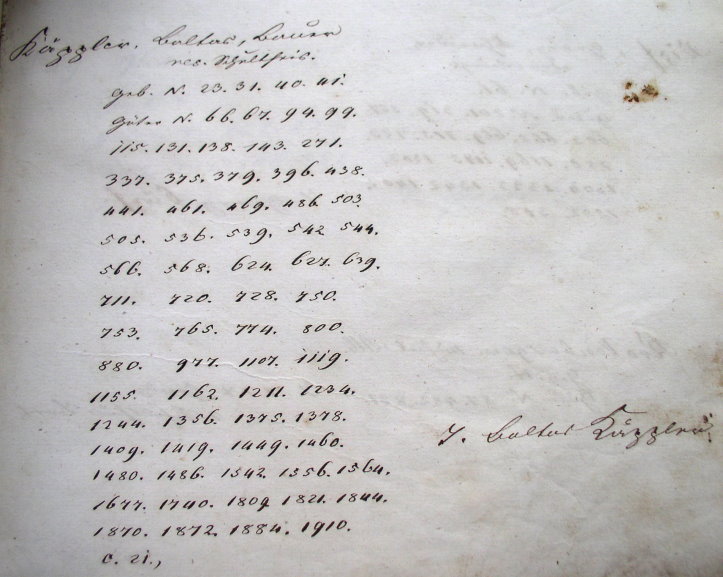 Käppler. Baltas, Bauer
res. Schultheis.
Geb. N. 23. 31. 40. 41.
Güter N. 66. 67. 94. 99.
115. 131. 138. 143. 271.
337. 375. 379. 396. 438.
441. 461. 469. 486. 503.
505. 536. 539. 542 544.
566. 568. 624. 627. 639.
711. 720. 728. 750.
753. 765. 774. 800.
880. 977. 1107. 1119.
1155. 1162. 1211. 1234.
1244. 1356. 1375. 1378.
1409. 1419. 1449. 1460.
1480. 1486. 1542. 1556. 1564.
1677. 1740. 1809 1821. 1844.
1870. 1872. 1884. 1910.
T. Baltas Käppler